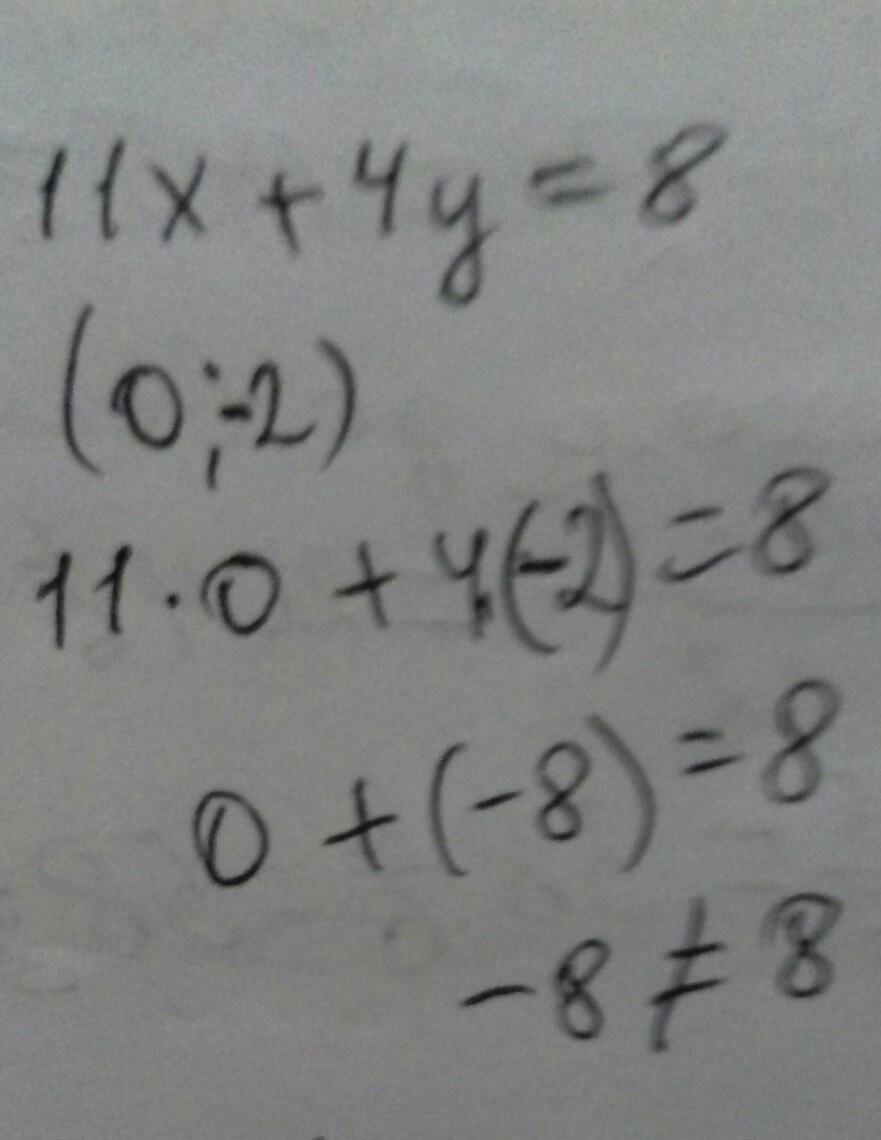 11x + 4y = 8
(0;-2)
11·0 + 4·(-2) = 8
0 + (-8) = 8
-8 ≠ 8